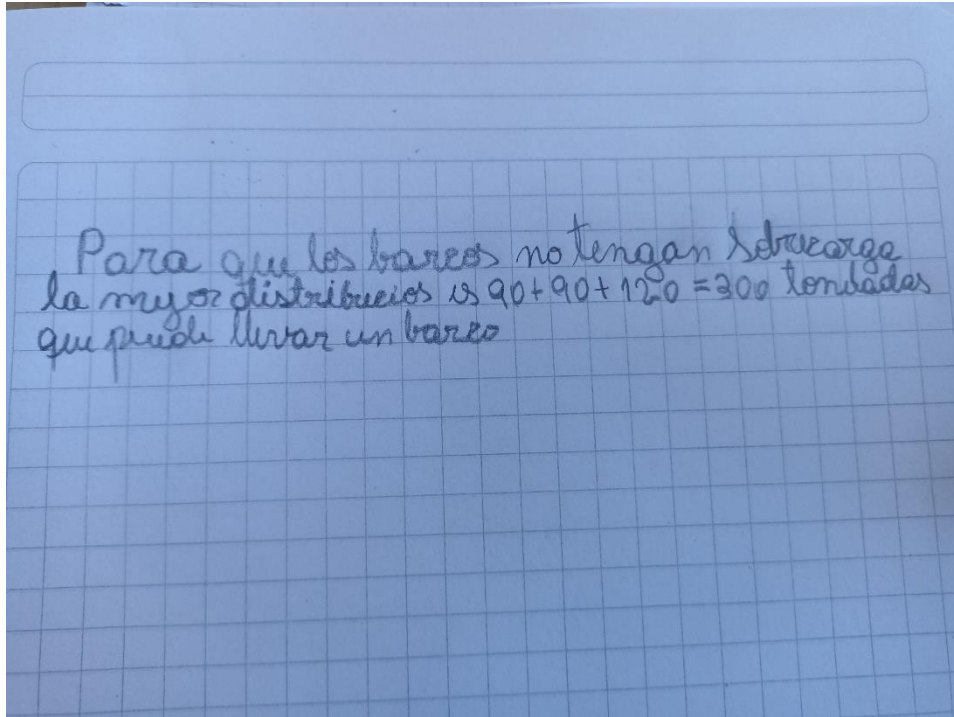 Para que los barcos no tengan sobrecarga
la myor distribucios es 90+90+120=300 tonladas
que puede llevar un barco